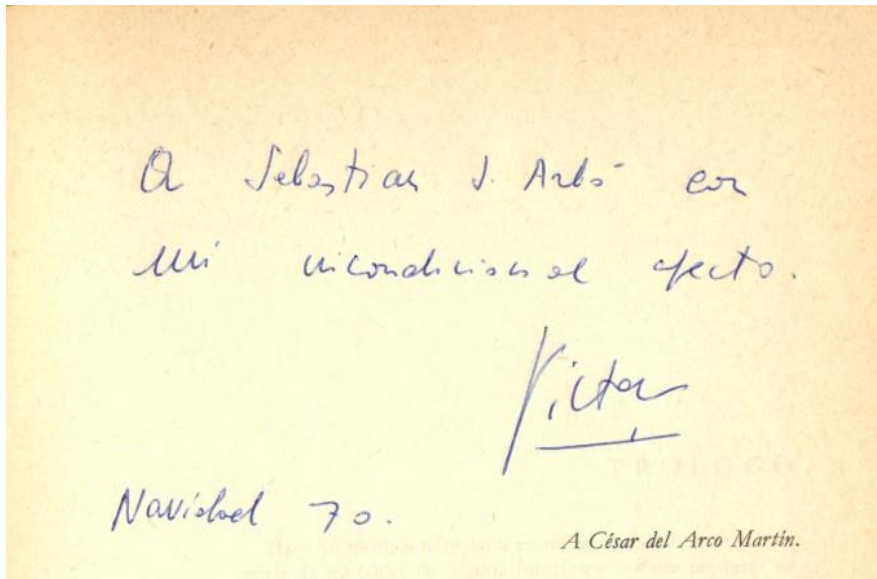 A Sebastian J. Arbó con
mi incondicional afecto.
Victor
Navidad 70.
A César del Arco Martín.